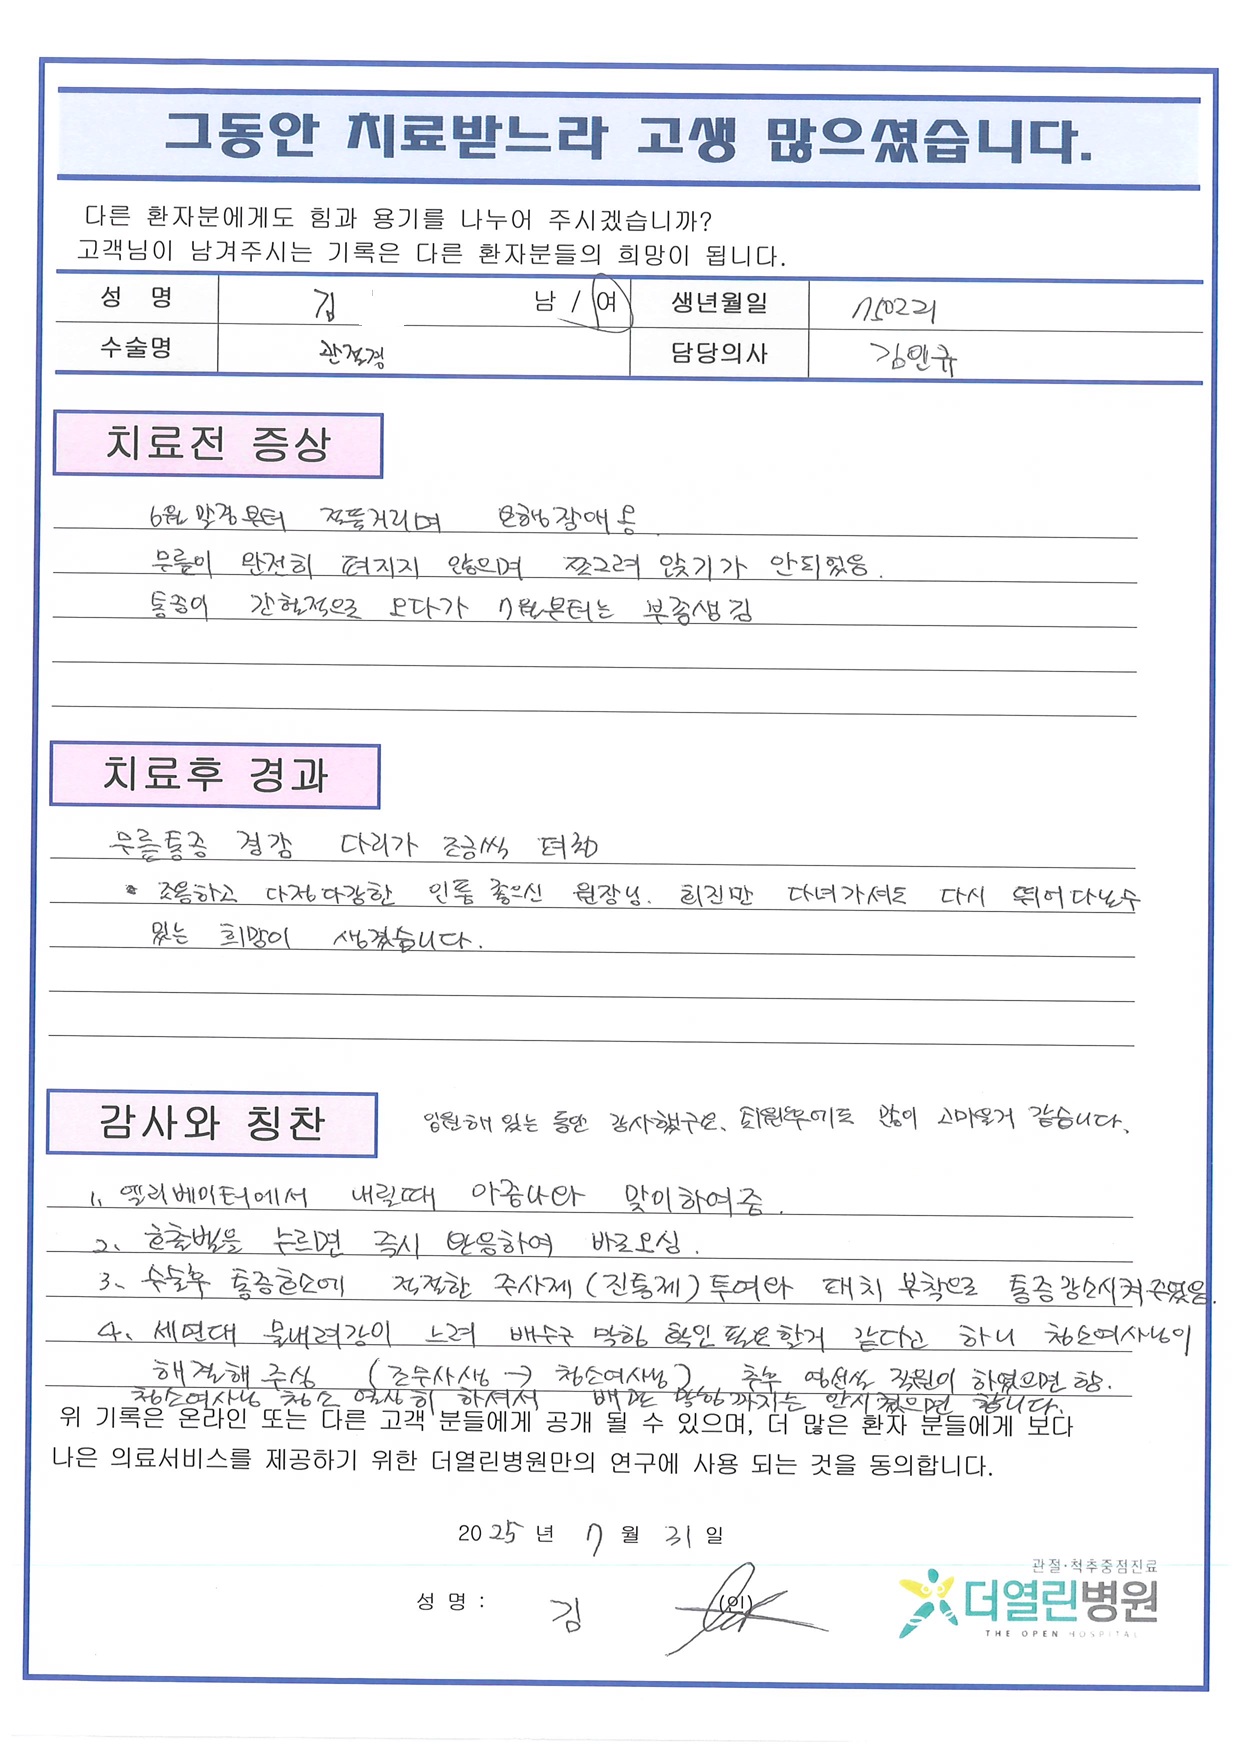 그동안 치료받느라 고생 많으셨습니다.
다른 환자분에게도 힘과 용기를 나누어 주시겠습니까?
고객님이 남겨주시는 기록은 다른 환자분들의 희망이 됩니다.
성 명 김 남 / 여 생년월일 750221
수술명 관절경 담당의사 김민규
치료전 증상
6월 말경부터 절뚝거리며 보행장애 옴
무릎이 완전히 펴지지 않으며 쪼그려 앉기가 안되었음.
통증이 간헐적으로 오다가 7월부터는 부종생김
치료후 경과
무릎통증 경감 다리가 조금씩 펴짐
• 조용하고 다정다감한 인품 좋으신 원장님. 회진만 다녀가셔도 다시 뛰어다닐수
있는 희망이 생겼습니다.
감사와 칭찬 입원해 있는 동안 감사했구요. 퇴원후에도 많이 고마울거 같습니다.
1. 엘리베이터에서 내릴때 마중나와 맞이하여줌.
2. 호출벨을 누르면 즉시 반응하여 바로오심.
3. 수술후 통증호소에 적절한 주사제(진통제)투여와 패치 부착으로 통증감소시켜주었음.
4. 세면대 물내려감이 느려 배수구 막힘 확인필요할거 같다고 하니 청소여사님이
해결해 주심 (조무사샘 → 청소여사님) 추후 영선실 직원이 하였으면 함.
청소여사님 청소 열심히 하셔서 배관 막힘까지는 안시켰으면 합니다.
위 기록은 온라인 또는 다른 고객 분들에게 공개 될 수 있으며, 더 많은 환자 분들에게 보다
나은 의료서비스를 제공하기 위한 더열린병원만의 연구에 사용 되는 것을 동의합니다.
2025 년 7 월 31 일
성 명 : 김 (인)
관절·척추중점진료
더열린병원
THE OPEN HOSPITAL